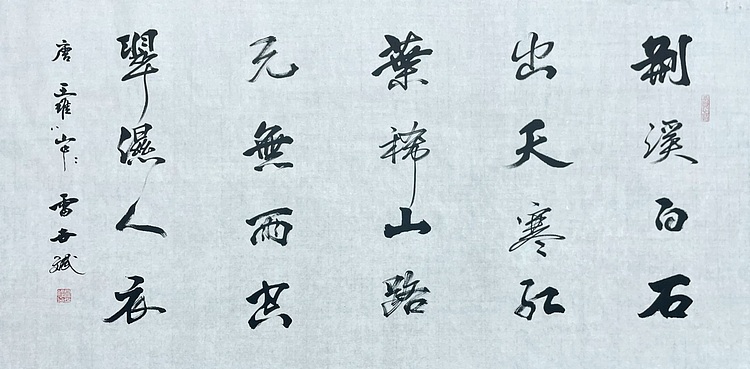 荆溪白石
出天寒紅
葉稀山路
元無雨空
翠濕人衣
唐 王維 山中 雷世斌